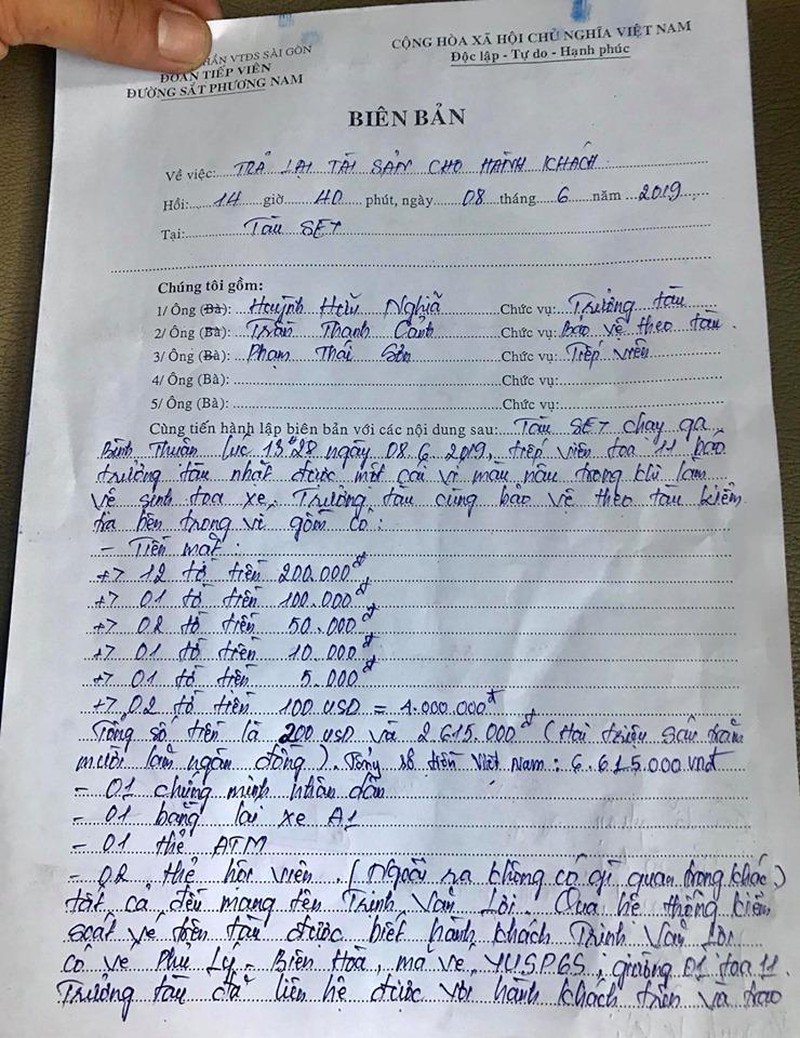 PHẦN VTĐS SÀI GÒN
ĐOÀN TIẾP VIÊN
ĐƯỜNG SẮT PHƯƠNG NAM
CỘNG HÒA XÃ HỘI CHỦ NGHĨA VIỆT NAM
Độc lập - Tự do - Hạnh phúc
BIÊN BẢN
Về việc: TRẢ LẠI TÀI SẢN CHO HÀNH KHÁCH
Hồi: 14 giờ 40 phút, ngày 08 tháng 6 năm 2019
Tại: Tàu SE7
Chúng tôi gồm:
1/ Ông (Bà): Huỳnh Hữu Nghĩa Chức vụ: Trưởng tàu
2/ Ông (Bà): Trần Thanh Cảnh Chức vụ: Bảo vệ theo tàu.
3/ Ông (Bà): Phạm Thái Sơn Chức vụ: Tiếp viên
4/ Ông (Bà): Chức vụ:
5/ Ông (Bà): Chức vụ:
Cùng tiến hành lập biên bản với các nội dung sau: Tàu SE7 chạy ga
Bình Thuận lúc 13h28 ngày 08.6.2019, tiếp viên toa 11 báo
trưởng tàu nhặt được một cái ví màu nâu trong khi làm
vệ sinh toa xe. Trưởng tàu cùng bảo vệ theo tàu kiểm
tra bên trong ví gồm có:
- Tiền mặt:
+> 12 tờ tiền 200.000đ
+> 01 tờ tiền 100.000đ
+> 02 tờ tiền 50.000đ
+> 01 tờ tiền 10.000đ
+> 01 tờ tiền 5.000đ
+> 02 tờ tiền 100 USD = 4.000.000đ
Tổng số tiền là 200 USD và 2.615.000đ (Hai triệu sáu trăm
mười lăm ngàn đồng). Tổng số tiền Việt Nam: 6.615.000 vnđ
- 01 chứng minh nhân dân
- 01 bằng lái xe A1
- 01 thẻ ATM
- 02 thẻ hội viên. (Ngoài ra không có gì quan trọng khác)
tất cả đều mang tên Trịnh Văn Lời. Qua hệ thống kiểm
soát vé trên tàu được biết hành khách Trịnh Văn Lời
có vé Phủ Lý - Biên Hoà, mã vé YUSPGS, giường 01 toa 11.
Trưởng tàu đã liên hệ được với hành khách trên và trao